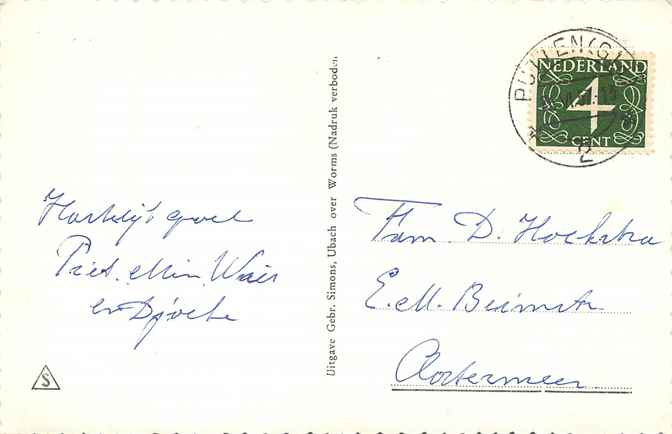 Hartelijk groet
Piet. Min. Wair
en Djoeke
Uitgave Gebr. Simons, Ubach over Worms (Nadruk verboden)
PUTTEN (G)
2
NEDERLAND
4
CENT
Fam. D. Hoekstra
E.M. Beimastr
Oostermeer
S